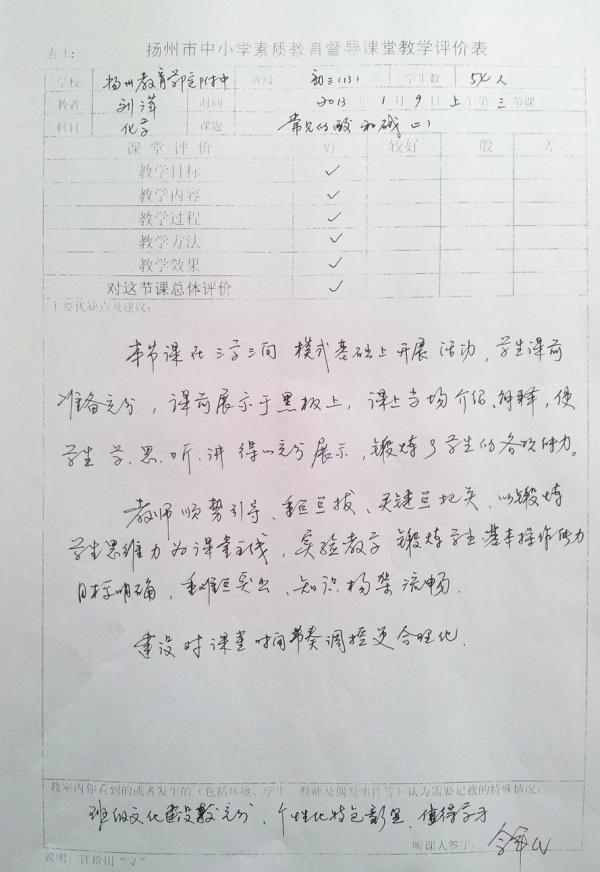 表1：
扬州市中小学素质教育督导课堂教学评价表
学校 扬州教育学院附中 班级 初三(13) 学生数 54人
教者 刘萍 时间 2013年1月9日上午第三节课
科目 化学 课题 常见的酸和碱(二)
课堂评价 好 较好 一般 差
教学目标 ✓
教学内容 ✓
教学过程 ✓
教学方法 ✓
教学效果 ✓
对这节课总体评价 ✓
主要优缺点及建议：
本节课在三学三问模式基础上开展活动，学生课前
准备充分，课前展示于黑板上，课上当场介绍、解释，使
学生学、思、听、讲得以充分展示，锻炼了学生的各项能力。
教师顺势引导、重点点拨、关键点把关，以锻炼
学生思维力为课堂主线，实验教学锻炼学生基本操作能力
目标明确，重难点突出、知识构架流畅.
建设对课堂时间节奏调控更合理化.
教室内你看到的或者发生的（包括环境、学生、教师及偶发事件等）认为需要记载的特殊情况：
班级文化建设较充分、个性化特色彰显、值得学习
听课人签字：
说明：评价用“√”